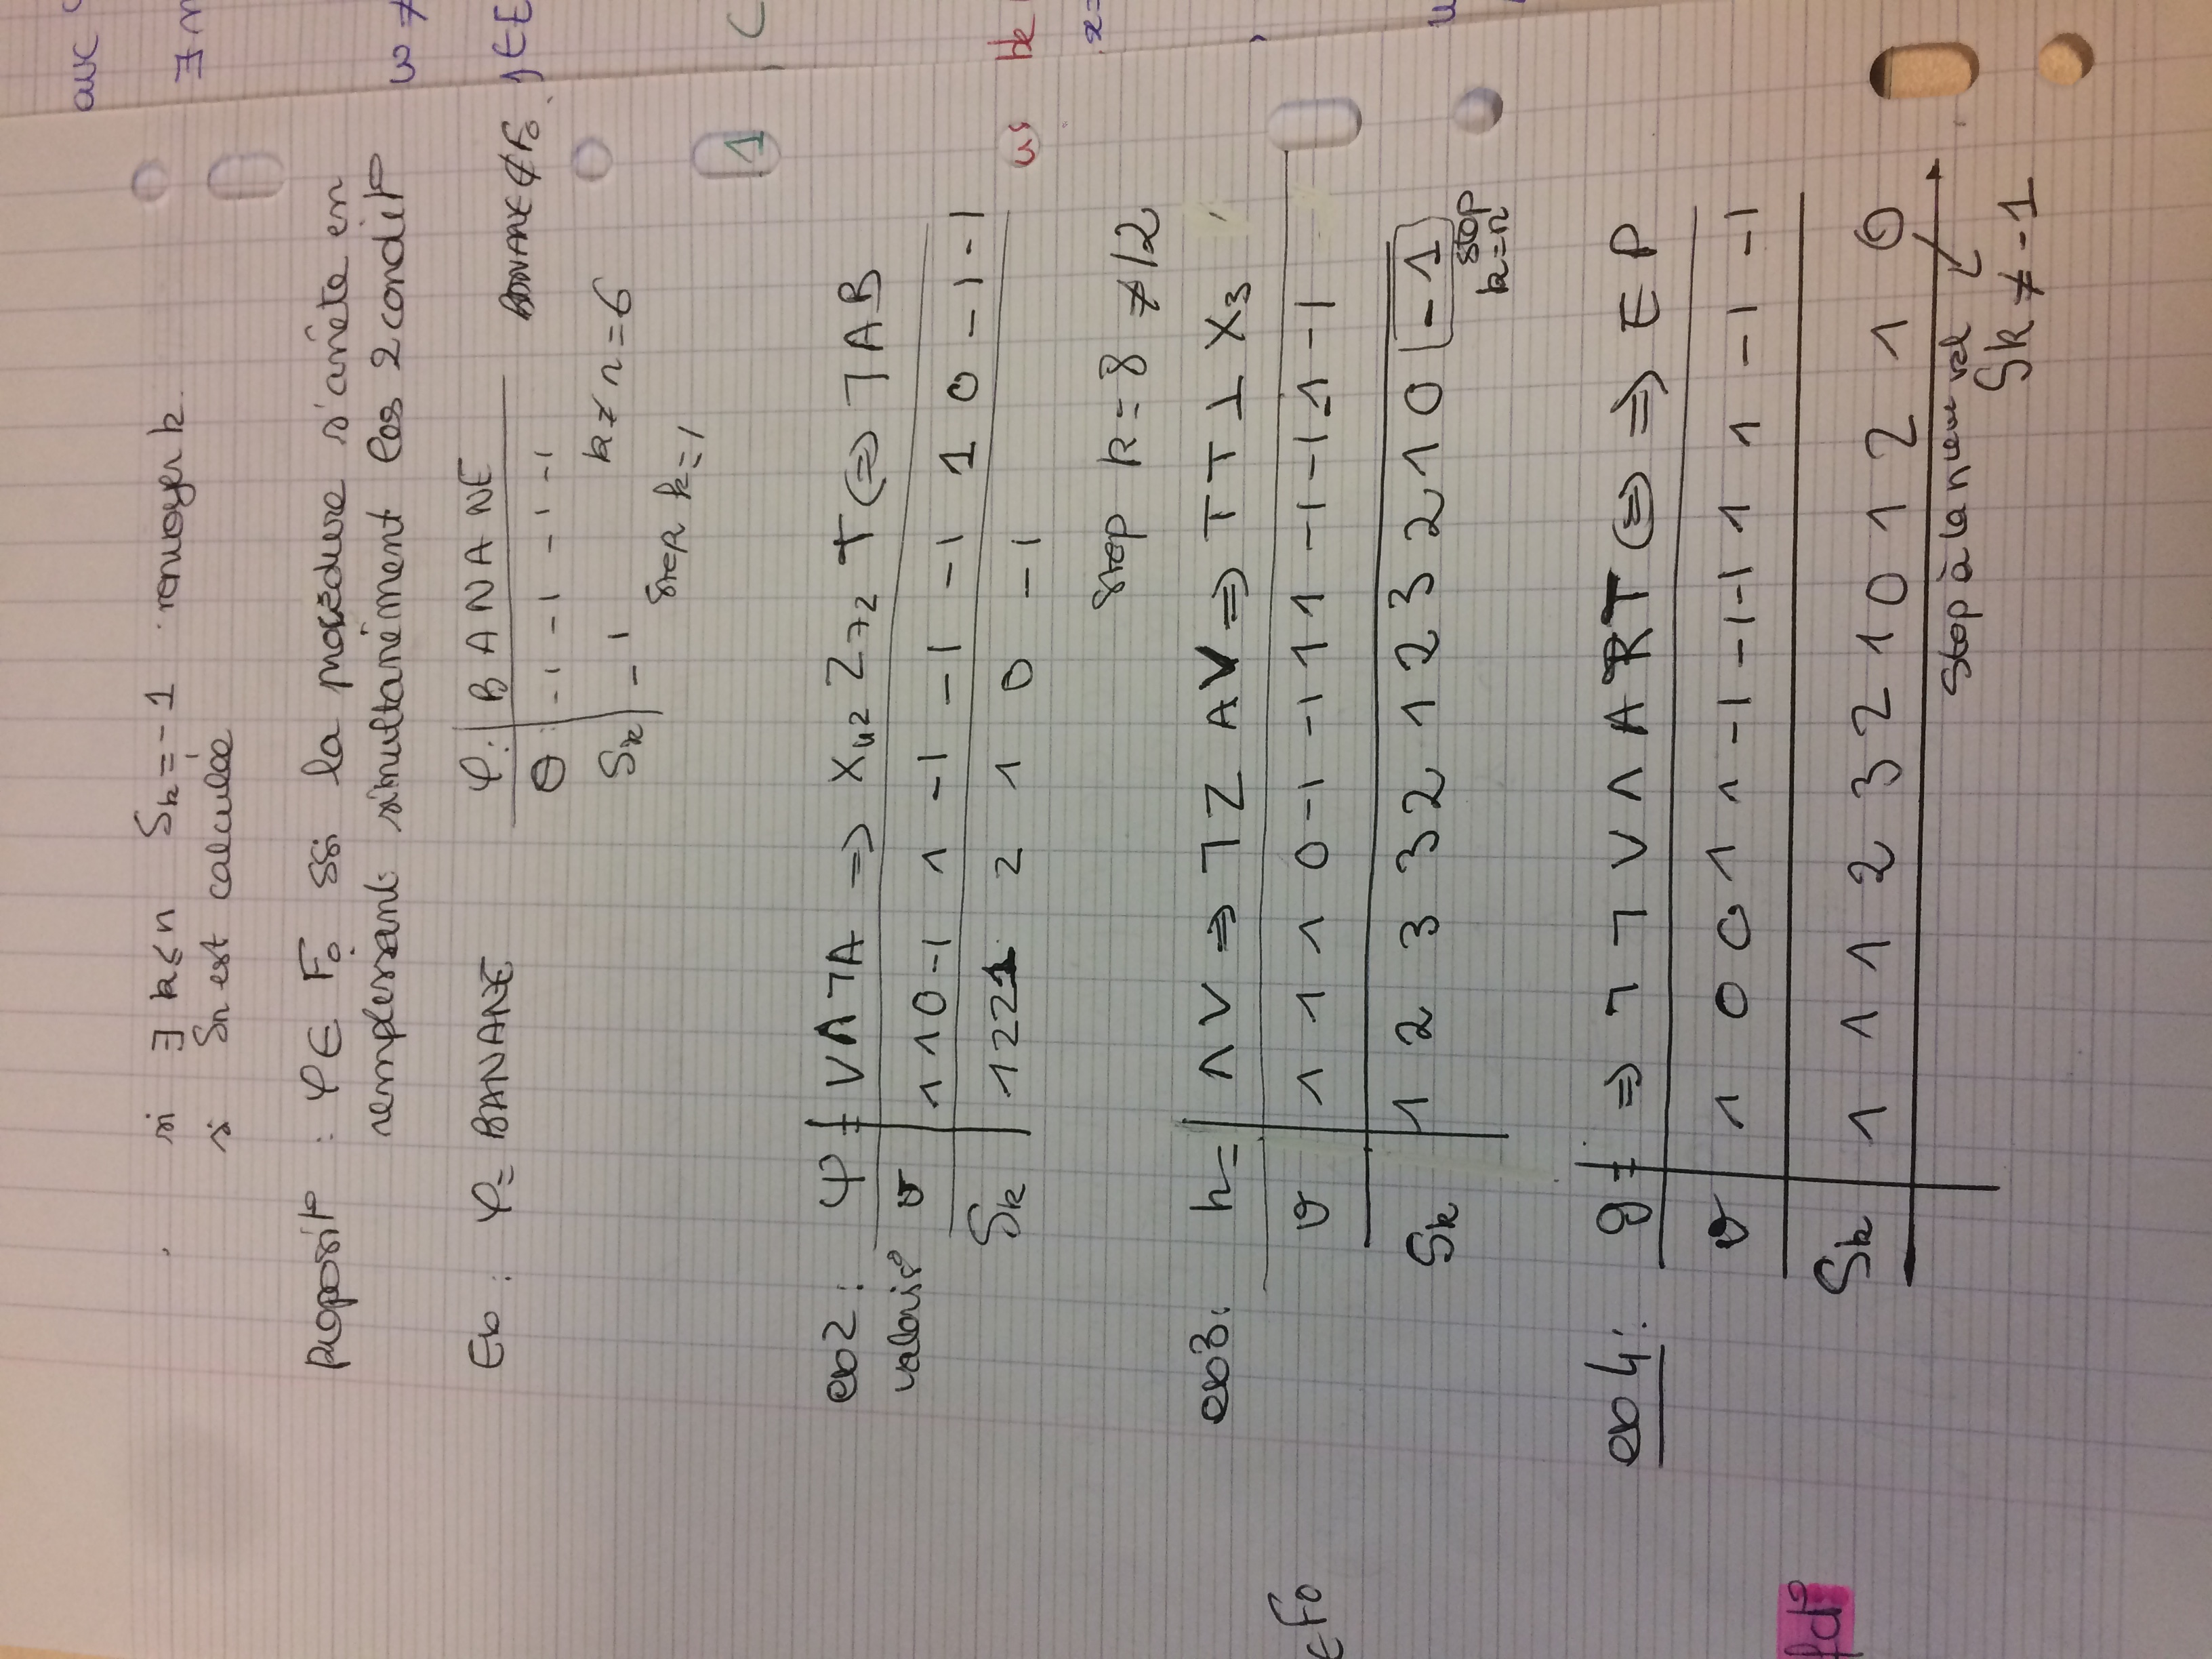 si ∃ k ≤ n Sk = -1 renvoyer k.
si Sn est calculée
Proposit° : φ ∈ F₀ ssi la procédure s'arrête en
remplissant simultanément les 2 condit°
Ex : φ = BANANE
φ. B A N A N E
BANANE ∉ F₀
θ -1 -1 -1 -1
Sk -1
k ≠ n = 6
STOP k = 1
ex2 : φ = ∨ ∧ ¬ A => X₄₂ Z₇₂ T <=> ¬ A B
valoris° v 1 1 0 -1 1 -1 -1 -1 1 0 -1 -1
Sk 1 2 2 1 2 1 0 -1
Stop k = 8 ≠ 12
ex3 : h = ∧ ∨ => ¬ Z A ∨ => T T ⊥ X₃
v 1 1 1 0 -1 -1 1 1 -1 -1 -1 -1
Sk 1 2 3 3 2 1 2 3 2 1 0 -1
stop
k = n
ex4 : g = => ¬ ¬ ∨ ∧ A R T <=> => E P
v 1 0 0 1 1 -1 -1 -1 1 1 -1 -1
Sk 1 1 1 2 3 2 1 0 1 2 1 0
Stop à la nieme val
Sk ≠ -1
∈ F₀
fct°
avc
∃ n
w ≠
∈ E
1 , C
us
x =